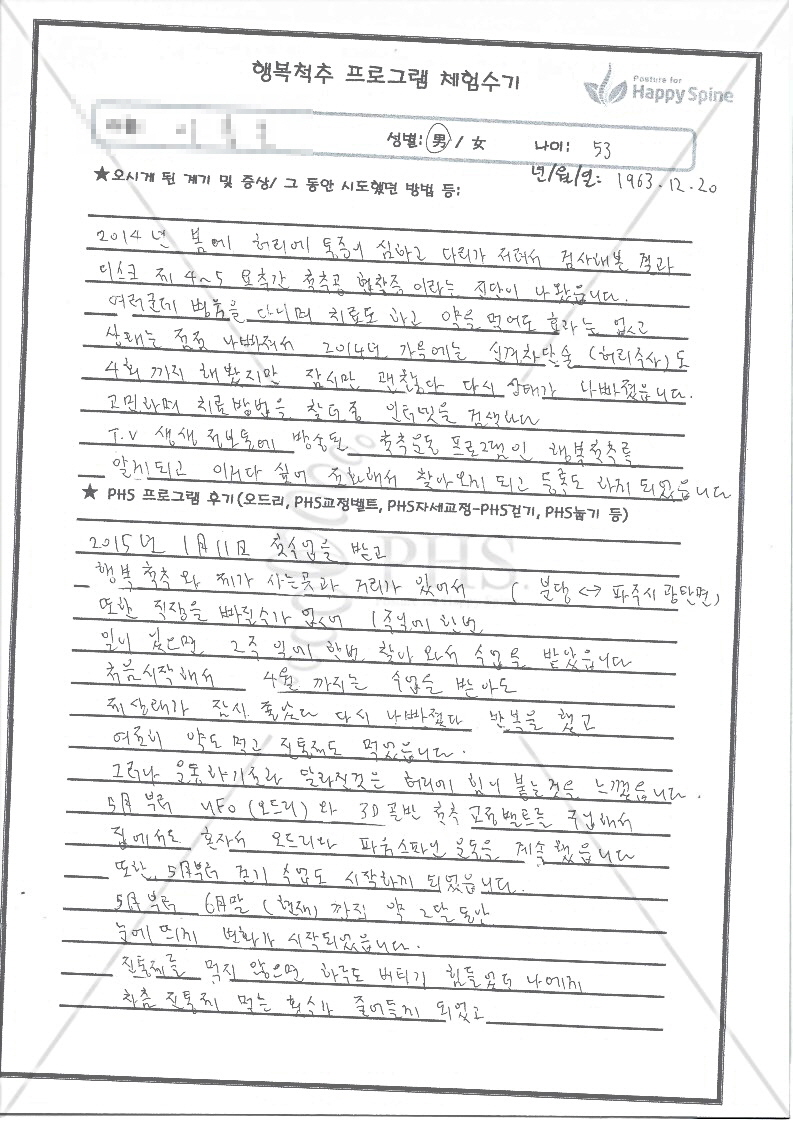 행복척추 프로그램 체험수기
Posture for
Happy Spine
성별: 男 / 女 나이: 53
년/월/일: 1963.12.20
★오시게 된 계기 및 증상/ 그 동안 시도했던 방법 등:
2014년 봄에 허리에 통증이 심하고 다리가 저려서 검사해본 결과
디스크 제 4~5 요추간 척추공 협착증 이라는 진단이 나왔읍니다.
여러군데 병원을 다니며 치료도 하고 약을 먹어도 효과는 없고
상태는 점점 나빠져서 2014년 가을에는 신경차단술 (허리주사)도
4회 까지 해봤지만 잠시만 괜찮다 다시 상태가 나빠졌읍니다.
고민하며 치료방법을 찾던중 인터넷을 검색하다
T.V 생생 정보통에 방송된 척추운동 프로그램인 행복척추를
알게되고 이거다 싶어 전화해서 찾아오게 되고 등록도 하게 되었읍니다
★ PHS 프로그램 후기(오드리, PHS교정벨트, PHS자세교정-PHS걷기, PHS눕기 등)
PHS.
2015년 1月 11日 첫수업을 받고
행복 척추와 제가 사는곳과 거리가 있어서 ( 분당 <-> 파주시 광탄면)
또한 직장을 빠질수가 없어 1주일에 한번
일이 있으면 2주 일에 한번 찾아 와서 수업을 받았읍니다
처음시작해서 4월 까지는 수업을 받아도
제 상태가 잠시 좋았다 다시 나빠졌다 반복을 했고
여전히 약도 먹고 진통제도 먹었읍니다.
그러나 운동하기전과 달라진것은 허리에 힘이 붙는것을 느꼈읍니다.
5月 부터 UFO (오드리) 와 3D 골반 척추 교정벨트를 구입해서
집에서도 혼자서 오드리와 파워스파인 운동을 계속 했읍니다
또한, 5月부터 걷기 수업도 시작하게 되었읍니다.
5月 부터 6月말 (현재) 까지 약 2달 동안
눈에 띄게 변화가 시작되었읍니다.
진통제를 먹지 않으면 하루도 버티기 힘들었던 나에게
차츰 진통제 먹는 횟수가 줄어들게 되었고